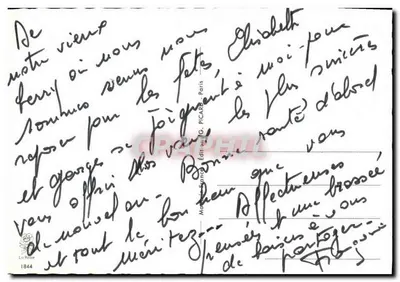 De
notre vieux
Berry où nous
sommes venus nous
reposer pour les fêtes, Elisabeth
et Georges se joignent à moi pour
vous offrir nos vœux les plus sincères
de nouvel an. Bonne santé d'abord
et tout le bonheur que vous
méritez...
Affectueuses
pensées et une brassée
de baisers à vous
partager
Edit. G. PICARD, Paris
1844